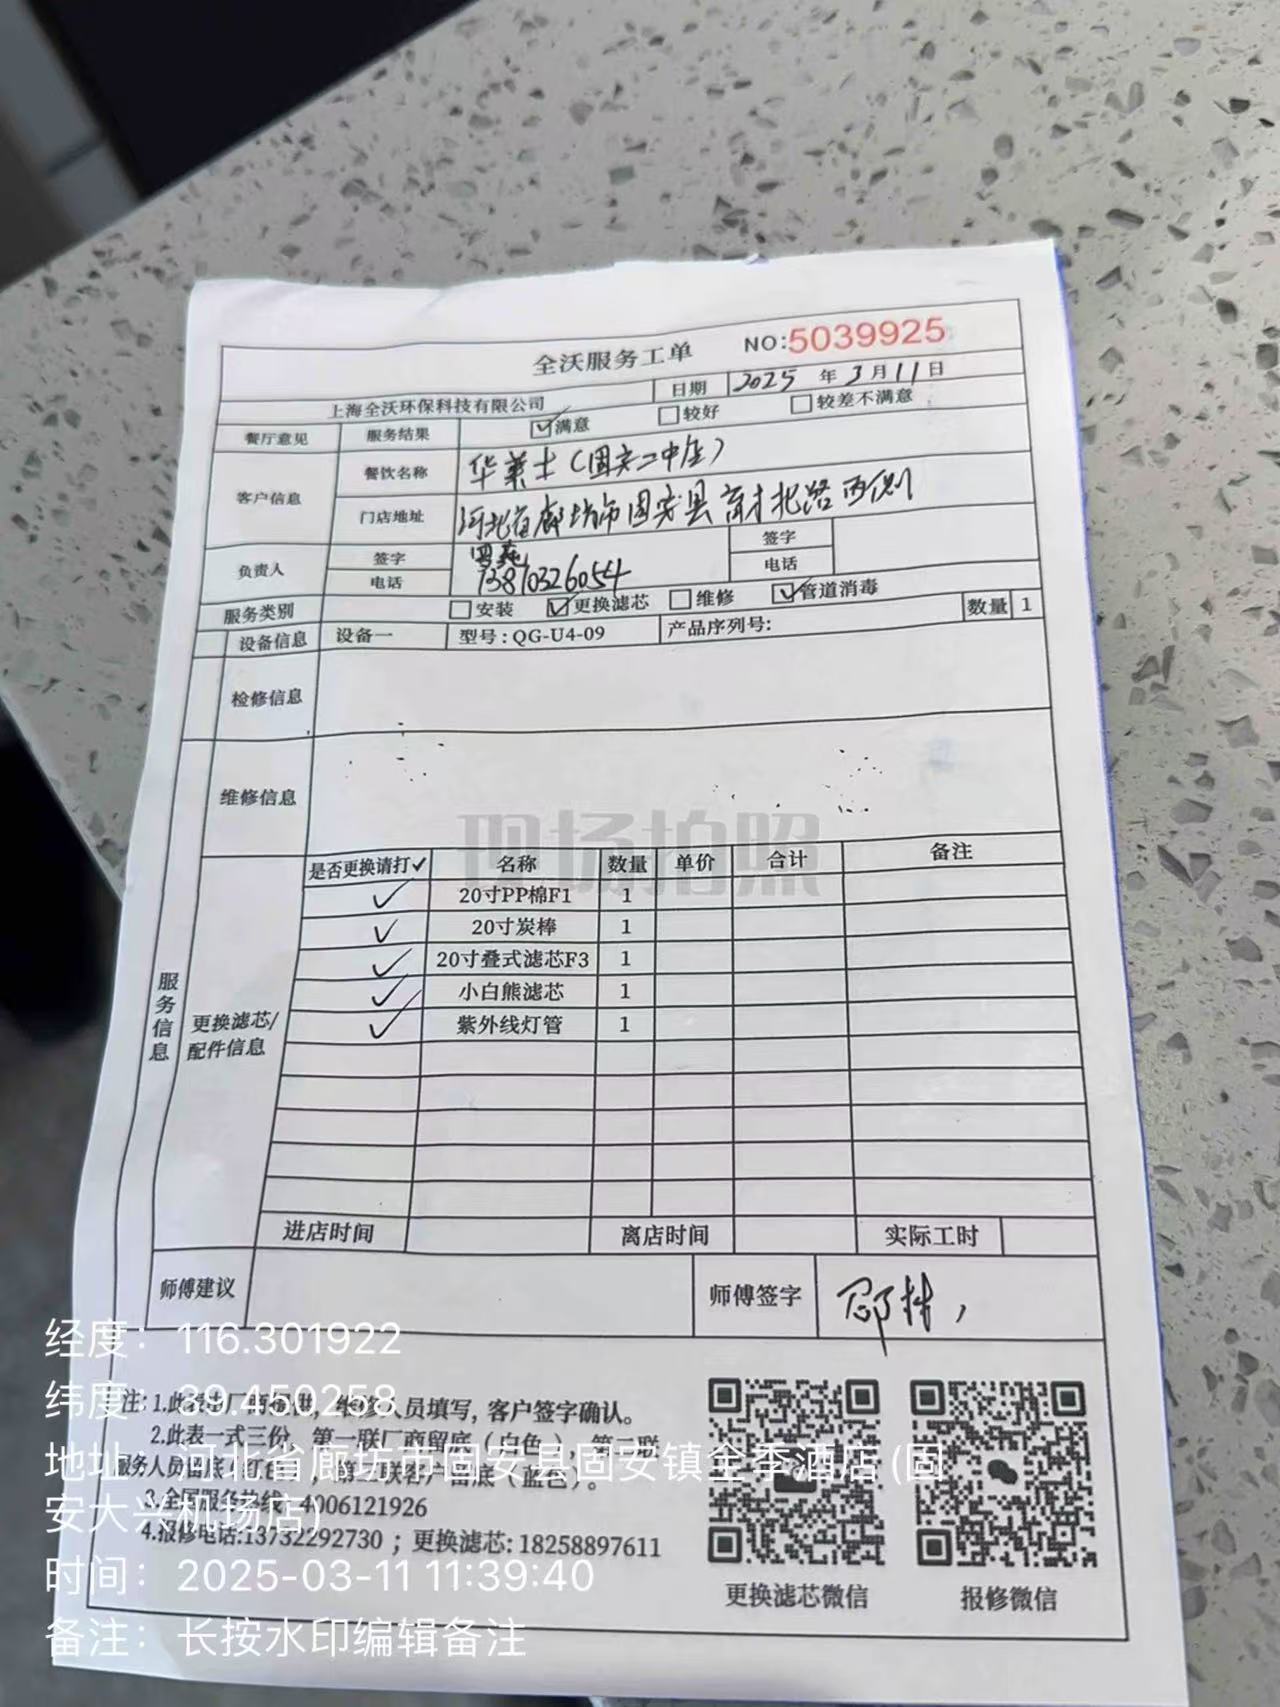 全沃服务工单 NO:5039925
上海全沃环保科技有限公司 日期 2025 年 3 月 11 日
餐厅意见 服务结果 ☑满意 □较好 □较差不满意
客户信息 餐饮名称 华莱士(固安二中店)
门店地址 河北省廊坊市固安县育才北路西侧
负责人 签字 签字
电话 13810326054 电话
服务类别 □安装 ☑更换滤芯 □维修 ☑管道消毒
设备信息 设备一 型号:QG-U4-09 产品序列号: 数量 1
检修信息
维修信息
现场拍照
服务信息
更换滤芯/
配件信息
是否更换请打✓ 名称 数量 单价 合计 备注
✓ 20寸PP棉F1 1
✓ 20寸炭棒 1
✓ 20寸叠式滤芯F3 1
✓ 小白熊滤芯 1
✓ 紫外线灯管 1
进店时间 离店时间 实际工时
师傅建议 师傅签字
经度：116.301922
纬度：39.450258
地址：河北省廊坊市固安县固安镇全季酒店(固
安大兴机场店)
时间：2025-03-11 11:39:40
备注：长按水印编辑备注
注:1.此表由厂商提供, 维修人员填写, 客户签字确认。
2.此表一式三份, 第一联厂商留底(白色), 第二联
服务人员留底(红色), 第三联客户留底(蓝色)。
3.全国服务热线:4006121926
4.报修电话:13732292730 ; 更换滤芯:18258897611
更换滤芯微信 报修微信